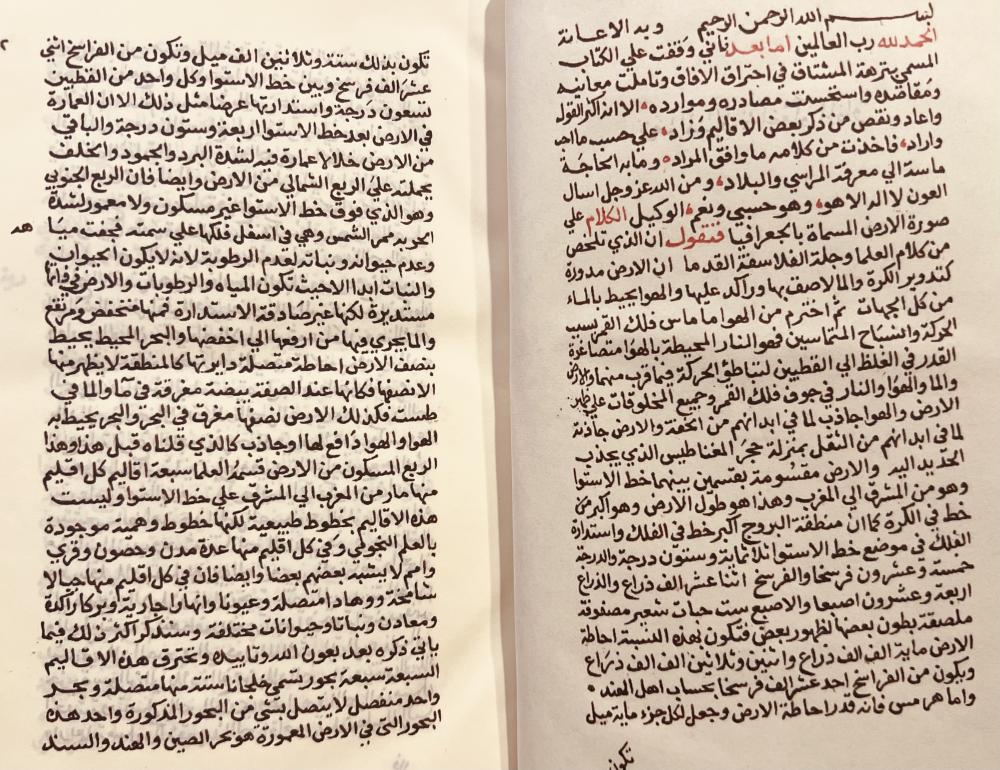 بسم الله الرحمن الرحيم وبه الاعانة
الحمد لله رب العالمين اما بعد فاني وقفت علي الكتاب
المسمي بنزهة المشتاق في اختراق الافاق وتاملت معانيه
ومقاصده واستحسنت مصادره وموارده، الا انه اكثر القول
واعاد ونقص من ذكر بعض الاقاليم وزاد، علي حسب ما احب
واراد، فاخذت من كلامه ما وافق المراد، وما به الحاجة
ماسة الي معرفة المراسي والبلاد، ومن الله عز وجل اسال
العون لا اله الا هو، وهو حسبي ونعم الوكيل الكلام علي
صورة الارض المسماة بالجعرافيا فنقول ان الذي تلخص
من كلام العلما وجلة الفلاسفة القدما ان الارض مدورة
كتدوير الكرة والما لاصق بها وراكد عليها والهوا يحيط بالماء
من كل الجهات ثم احترم من الهوا ما ماس فلك القر بسبب
الحركة والشباح المتماسين فهو النار المحيطة بالهوا متصاغرة
القدر في الغلظ الي القطبين لتباطؤ الحركة فيما قرب منهما والارض
والما والهوا والنار في جوف فلك القمر وجميع المخلوقات علي ظهر
الارض والهوا جاذب لما في ابدانهم من الخفة والارض جاذبة
لما في ابدانهم من الثقل بمنزلة حجر المغناطيس الذي يجذب
الحديد اليه والارض مقسومة بقسمين بينهما خط الاستوا
وهو من المشرق الي المغرب وهذا هو طول الارض وهو اكبر من
خط في الكرة كما ان منطقة البروج اكبر خط في الفلك واستدارة
الفلك في موضع خط الاستوا ثلاثماية وستون درجة والدرجة
خمسة وعشرون فرسخا والفرسخ اثنا عشر الف ذراع والذراع
اربعة وعشرون اصبعا والاصبع ست حبات شعير مصفوفة
ملصقة بطون بعضها لظهور بعض فتكون بهذه النسبة احاطة
الارض ماية الف الف ذراع واثنين وثلاثين الف الف ذراع
ويكون من الفراسخ احد عشر الف فرسخا بحساب اهل الهند
واما هرمس فانه قدر احاطة الارض وجعل لكل جزء ماية ميل
تكون
تكون بذلك ستة وثلاثين الف ميل وتكون من الفراسخ اثني
عشر الف فرسخ وبين خط الاستوا وكل واحد من القطبين
تسعون درجة واستدارتها عرضا مثل ذلك الا ان العمارة
في الارض بعد خط الاستوا اربعة وستون درجة والباقي
من الارض خلا لا عمارة فيه لشدة البرد والجمود والخلف
بجملته علي الربع الشمالي من الارض وايضا فان الربع الجنوبي
وهو الذي فوق خط الاستوا غير مسكون ولا معمور لشدة
الحر به ممر الشمس وهي في اسفل فلكها علي سمته فجفت مياهه
وعدم حيوانه ونباته لعدم الرطوبة لانه لا يكون الحيوان
والنبات ابدا الا حيث تكون المياه والرطوبات والارض في ذاتها
مستديرة لكنها غير صادقة الاستدارة فمنها منخفض ومرتفع
والما يجري فيها من ارفعها الي اخفضها والبحر المحيط يحيط
بنصف الارض احاطة متصلة دايرتها كالمنطقة لا يظهر منها
الا نصفها فكانها عند الصفة بيضة مغرقة في ما والما في
طست فكذلك الارض نصفها مغرق في البحر والبحر يحيط به
الهوا والهوا دافع لها او جاذب كالذي قلناه قبل هذا وهذا
الربع المسكون من الارض قسمه العلما سبعة اقاليم كل اقليم
منها مار من المغرب الي المشرق علي خط الاستوا وليست
هذه الاقاليم بخطوط طبيعية لكنها خطوط وهمية موجودة
بالعلم النجومي وفي كل اقليم منها عدة مدن وحصون وقري
وامم لا يشبه بعضهم بعضا وايضا فان في كل اقليم منها جبالا
شامخة ووهادا متصلة وعيونا وانهارا جارية وبركا راكدة
ومعادن ونباتا وحيوانات مختلفة وسنذكر اكثر ذلك فيما
ياتي ذكره بعد بعون الله وتاييده وتخترق هذه الاقاليم
السبعة سبعة بحور تسمي خلجانا ستة منها متصلة وبحر
واحد منفصل لا يتصل بشي من البحور المذكورة واحد هذه
البحور التي في الارض المعمورة هو بحر الصين والهند والسند